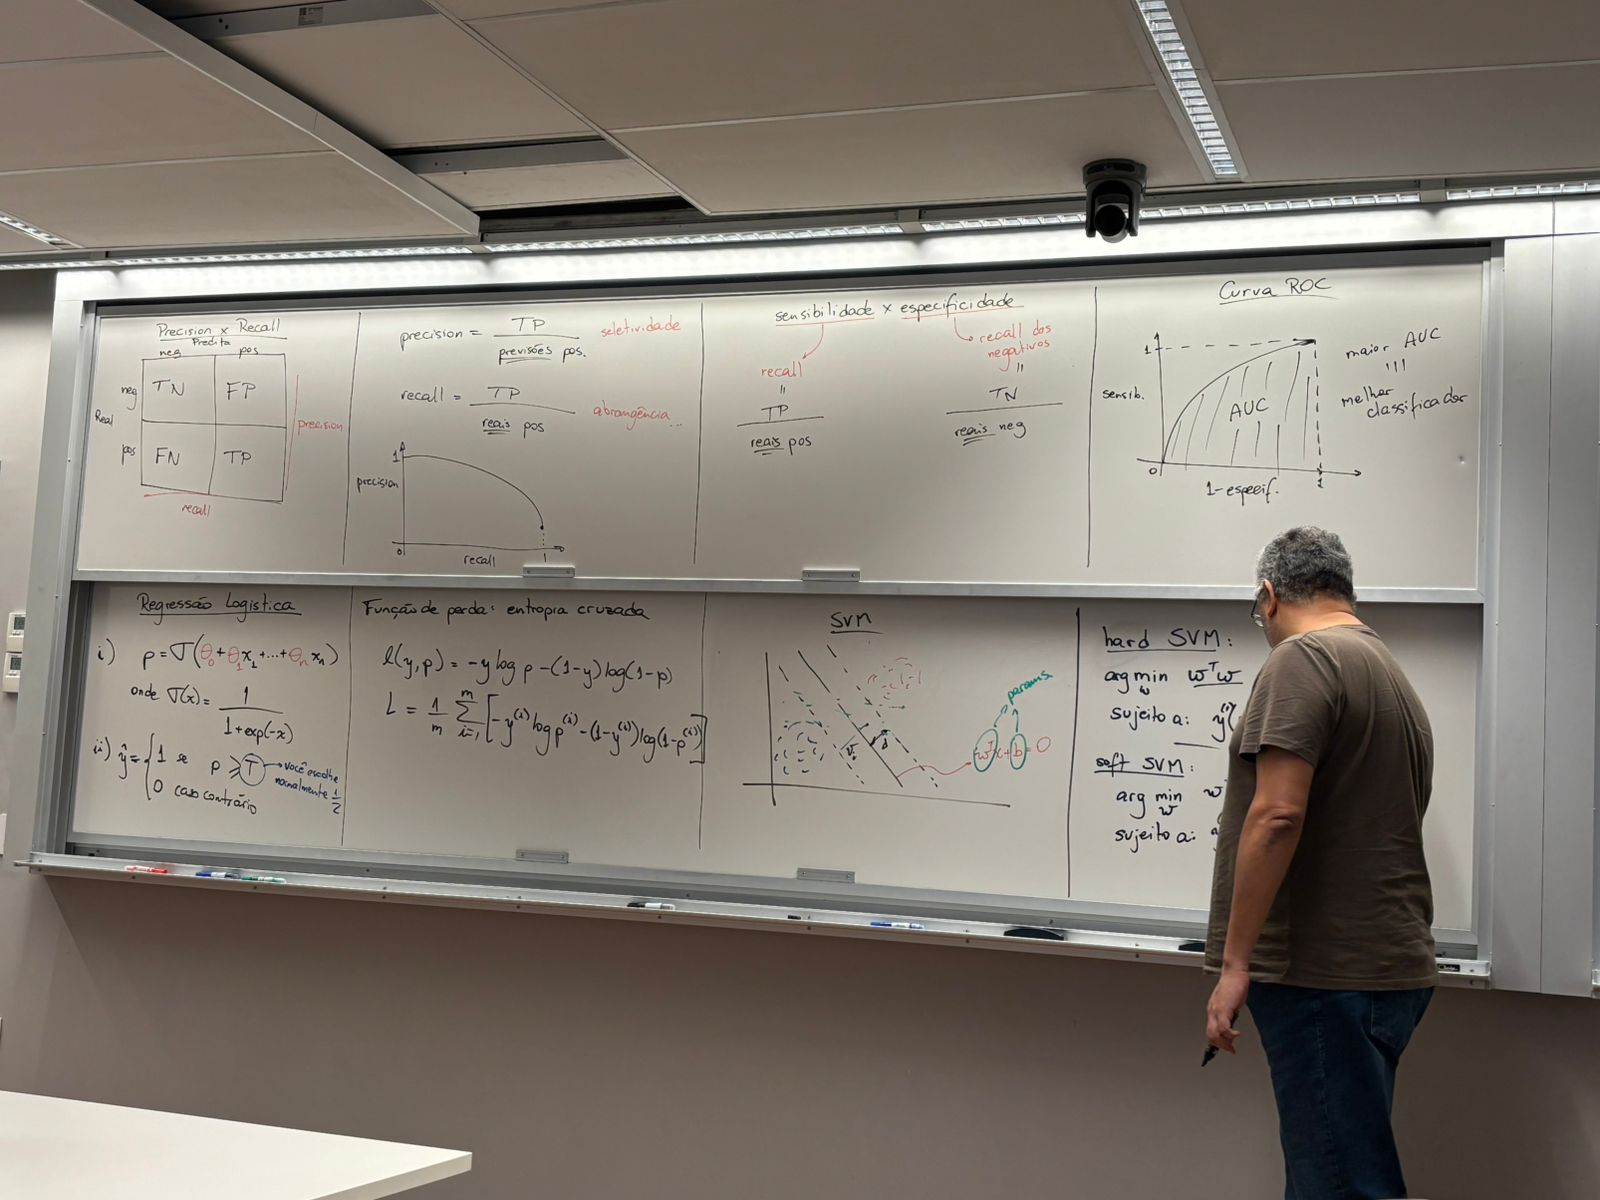 Precision x Recall
Predita
neg pos
neg TN FP
Real
pos FN TP
precision
recall
precision = TP / previsões pos. seletividade
recall = TP / reais pos abrangência...
1
precision
0 recall 1
sensibilidade x especificidade
recall
=
TP
reais pos
recall dos
negativos
=
TN
reais neg
Curva ROC
1
sensib.
AUC
0 1
1-especif.
maior AUC
melhor
classificador
Regressão Logística
i) p = σ(θ₀ + θ₁x₁ + ... + θₙxₙ)
onde σ(x) = 1 / 1+exp(-x)
ii) ŷ = { 1 se p ≥ T → você escolhe
normalmente 1/2
0 caso contrário
Função de perda: entropia cruzada
l(y,p) = -y log p - (1-y) log(1-p)
L = 1/m Σ_{i=1}^{m} [-y^(i) log p^(i) - (1-y^(i)) log(1-p^(i))]
SVM
params
d
wᵀx + b = 0
hard SVM:
arg min wᵀw
w
sujeito a: y^(i)(
soft SVM:
arg min
w
sujeito a: